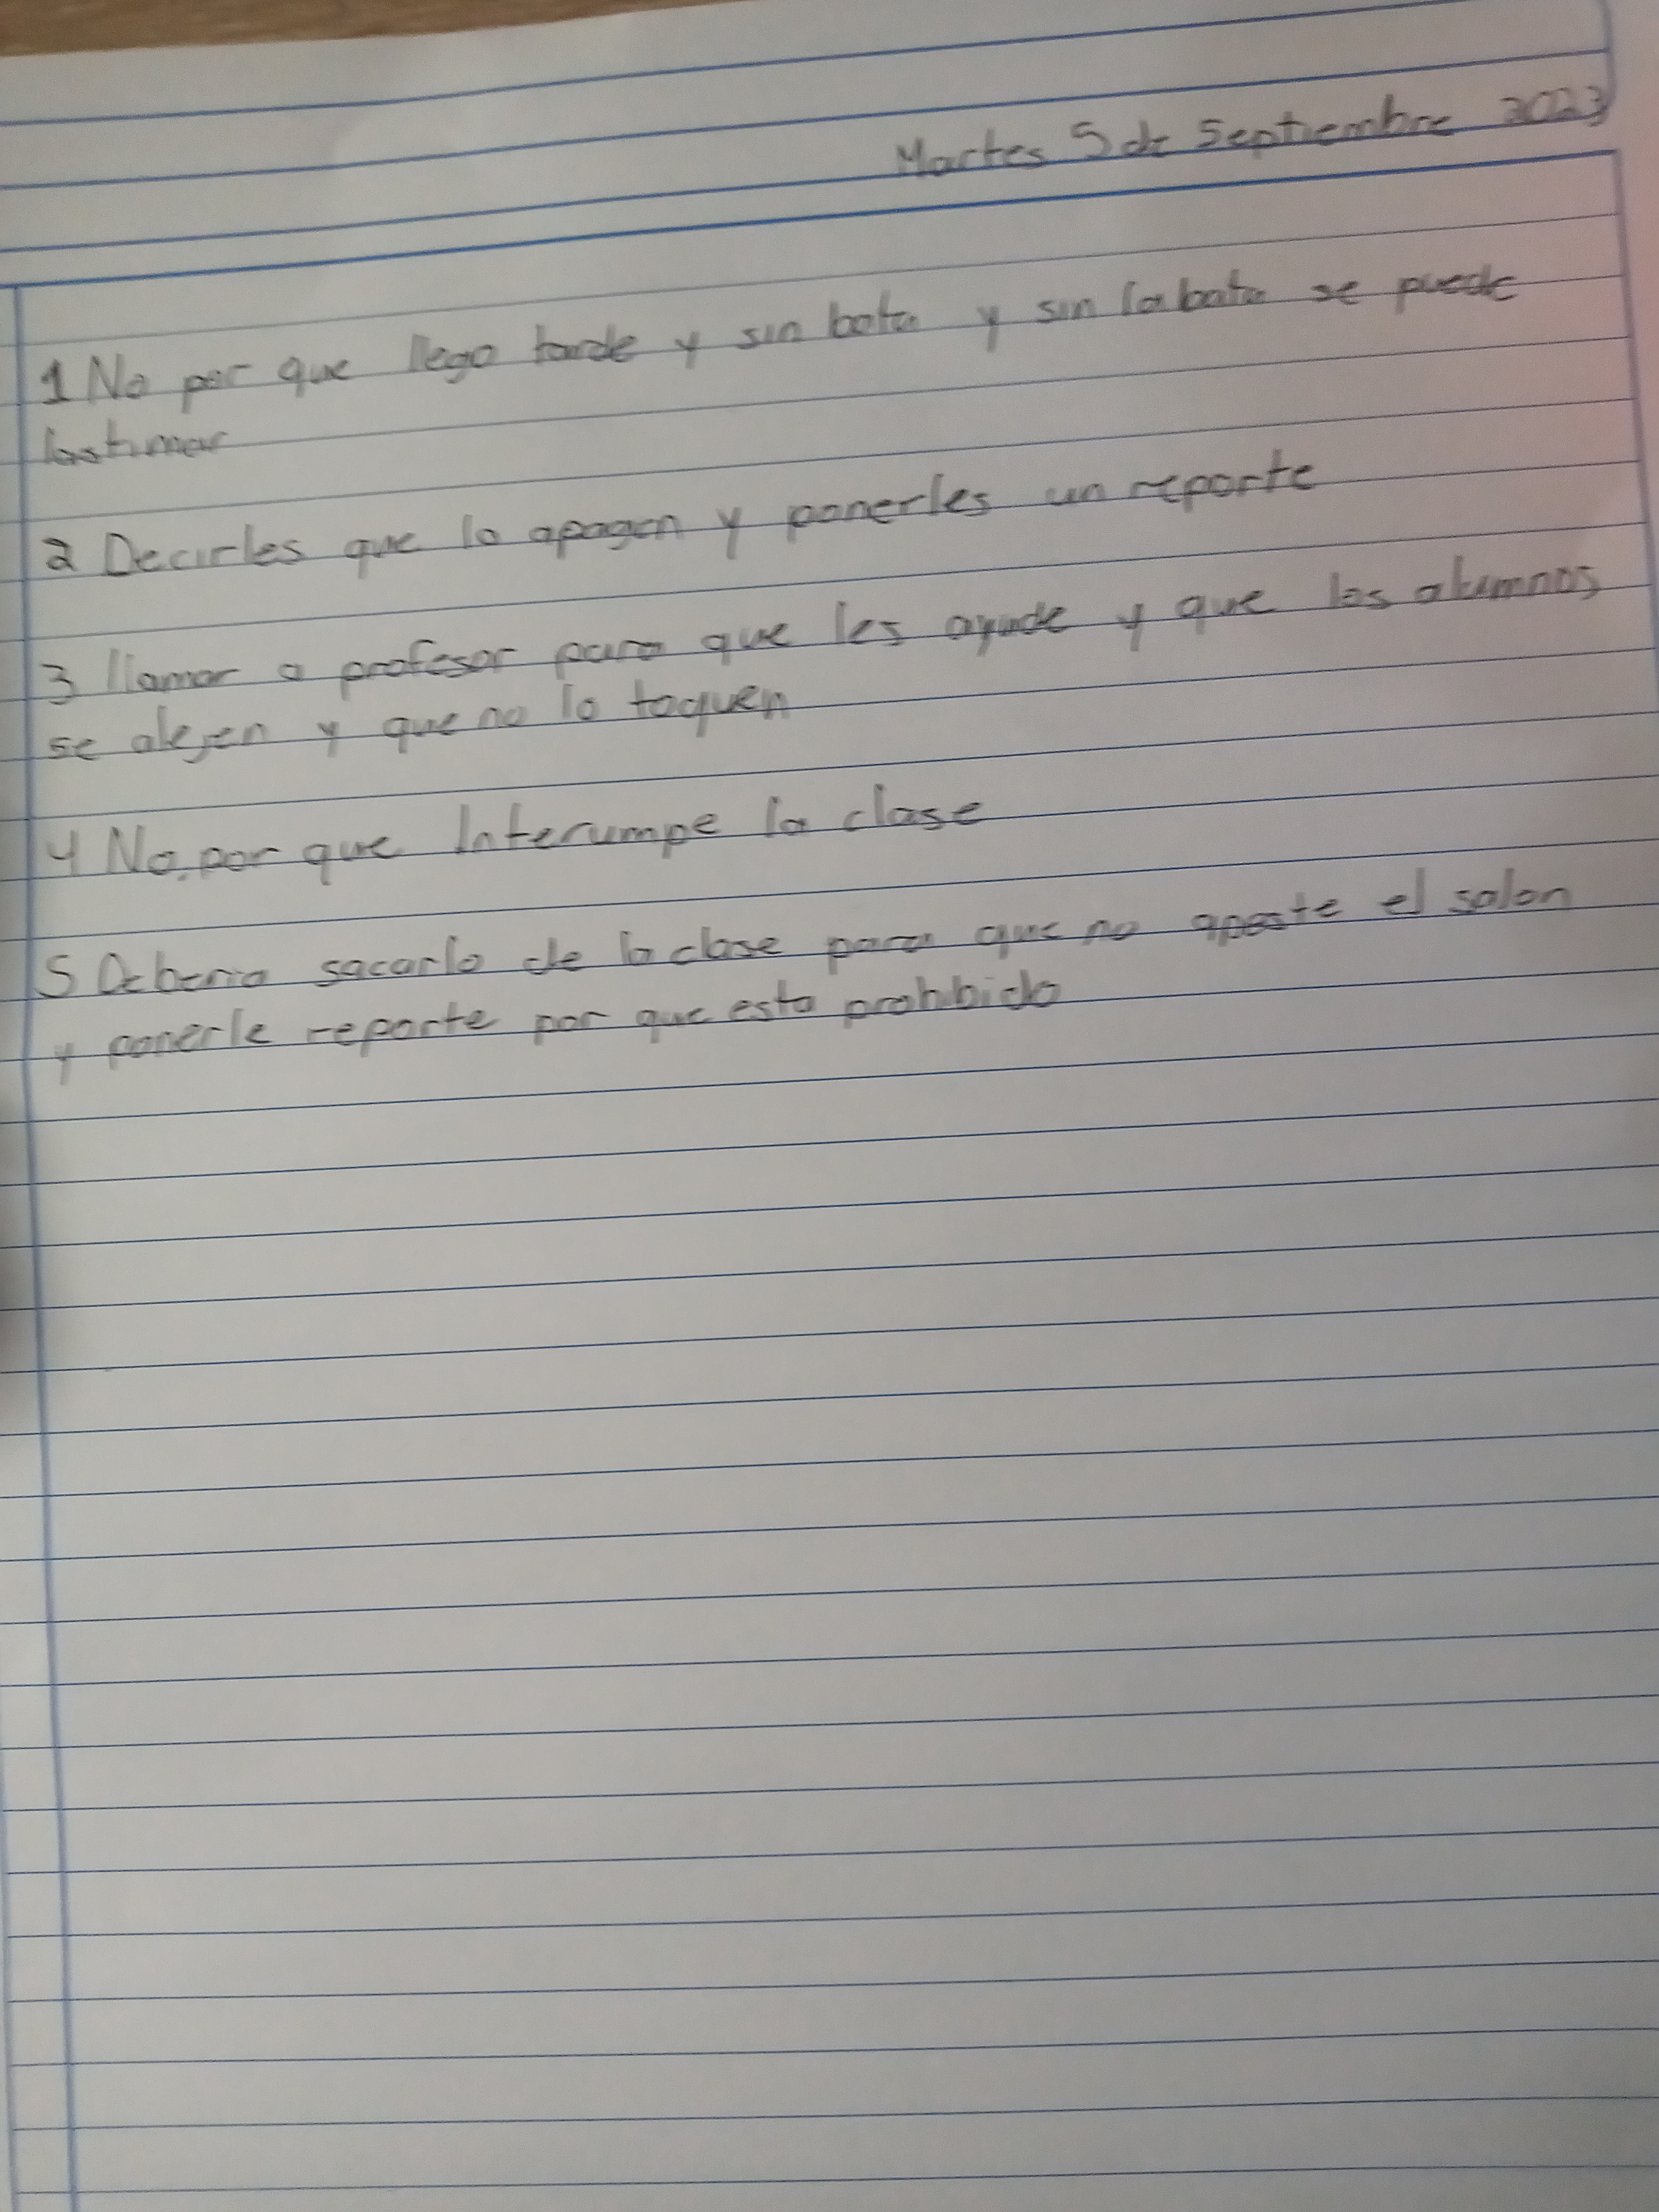 Martes 5 de Septiembre 2023
1 No por que llego tarde y sin bata y sin la bata se puede
lastimar
2 Decirles que lo apagen y ponerles un reporte
3 llamar a profesor para que les ayude y que los alumnos
se alejen y que no lo toquen
4 No. por que Interumpe la clase
5 Deberia sacarlo de la clase para que no apeste el salon
y ponerle reporte por que esta prohibido